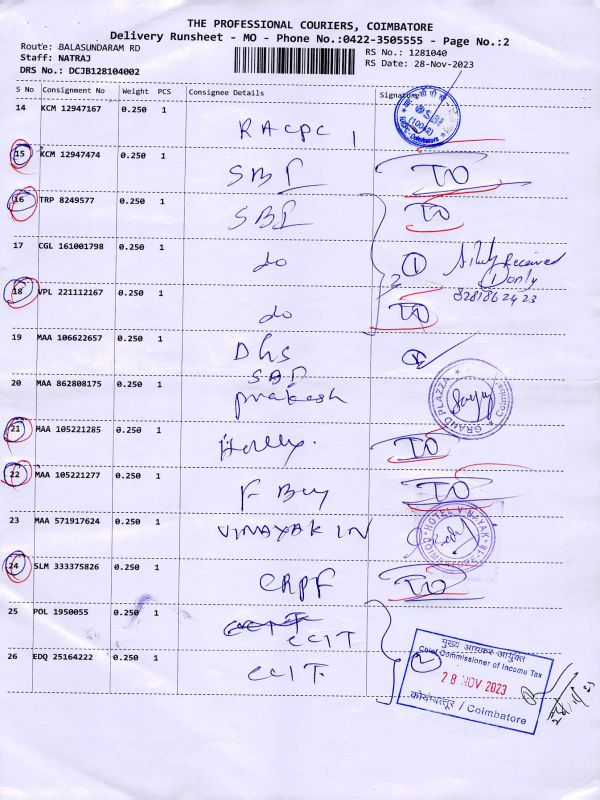 THE PROFESSIONAL COURIERS, COIMBATORE
Delivery Runsheet - MO - Phone No.:0422-3505555 - Page No.:2
Route: BALASUNDARAM RD
Staff: NATRAJ
DRS No.: DCJB128104002
RS No.: 1281040
RS Date: 28-Nov-2023
S No Consignment No Weight PCS Consignee Details Signature
14 KCM 12947167 0.250 1 RACPC 1
15 KCM 12947474 0.250 1 SBI TO
16 TRP 8249577 0.250 1 SBI TO
17 CGL 161001798 0.250 1 do 1 Received
1 only
18 VPL 221112167 0.250 1 do 2 TO 8281862423
19 MAA 106622657 0.250 1 DHS
SBI
20 MAA 862808175 0.250 1 prakash GRAND PLAZZA
21 MAA 105221285 0.250 1 TO
22 MAA 105221277 0.250 1 F Buy TO
23 MAA 571917624 0.250 1 VINAYAK IN HOTEL VINAYAK
24 SLM 333375826 0.250 1 CRPF TO
25 POL 1950055 0.250 1 CCIT
CCIT
26 EDQ 25164222 0.250 1 CCIT.
मुख्य आयकर आयुक्त
Chief Commissioner of Income Tax
2
28 NOV 2023
कोयंबत्तूर / Coimbatore